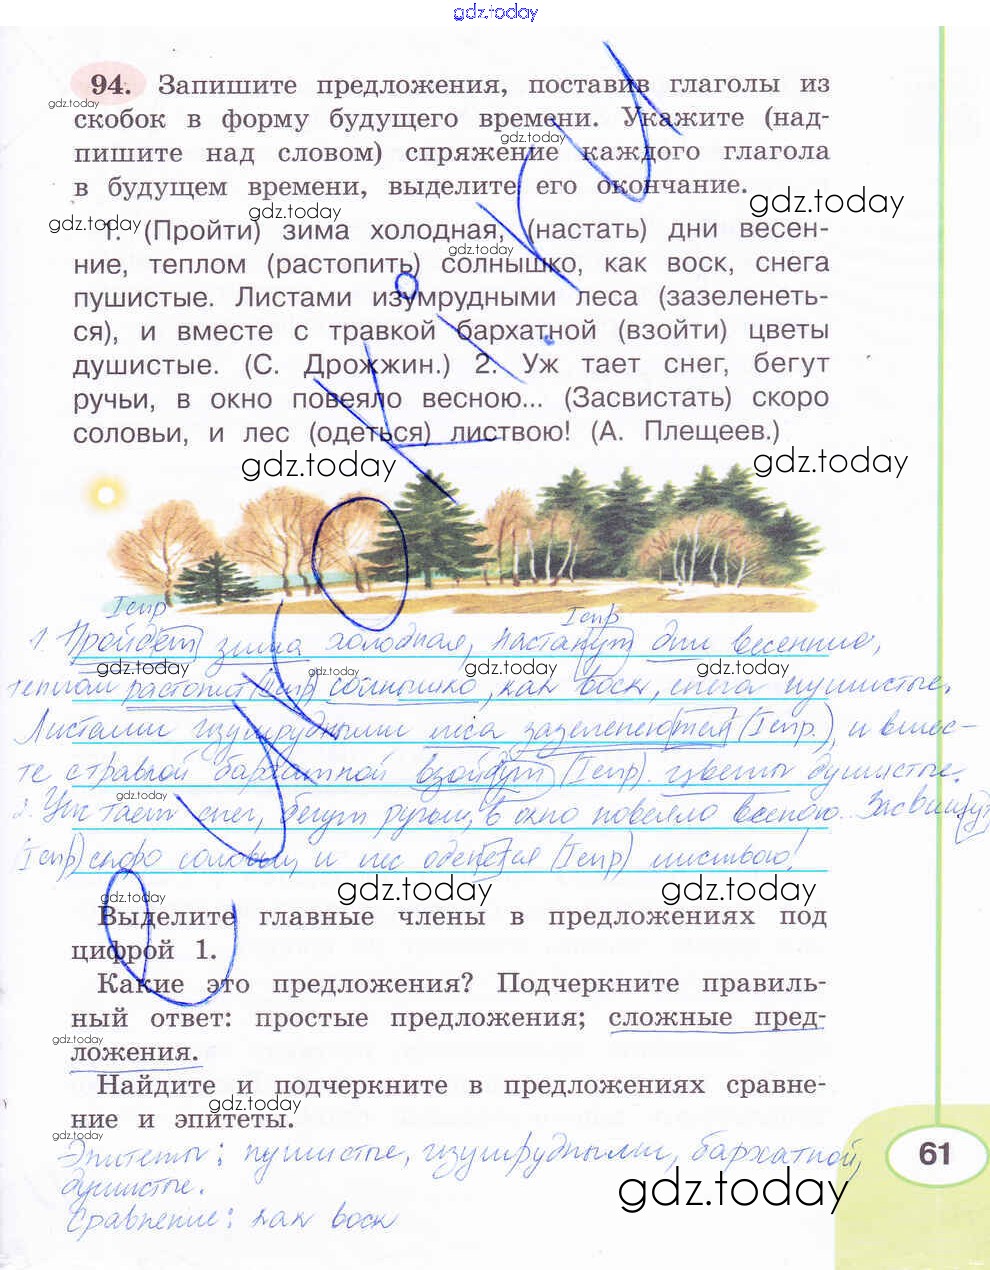 gdz.today
94. Запишите предложения, поставив глаголы из
gdz.today
скобок в форму будущего времени. Укажите (над-
gdz.today
пишите над словом) спряжение каждого глагола
в будущем времени, выделите его окончание.
gdz.today gdz.today gdz.today
1. (Пройти) зима холодная, (настать) дни весен-
gdz.today
ние, теплом (растопить) солнышко, как воск, снега
пушистые. Листами изумрудными леса (зазеленеть-
ся), и вместе с травкой бархатной (взойти) цветы
душистые. (С. Дрожжин.) 2. Уж тает снег, бегут
ручьи, в окно повеяло весною... (Засвистать) скоро
соловьи, и лес (одеться) листвою! (А. Плещеев.)
gdz.today gdz.today
eurokI.ru
Iспр Iспр
1. Пройдёт зима холодная, настанут дни весенние,
gdz.today gdz.today gdz.today
теплом растопит (IIспр) солнышко, как воск, снега пушистые.
Листами изумрудными леса зазеленеются (Iспр.), и вмес-
те с травкой бархатной взойдут (Iспр). цветы душистые.
gdz.today
2. Уж тает снег, бегут ручьи, в окно повеяло весною... Засвищут
(Iспр) скоро соловьи, и лес оденется (Iспр) листвою!
gdz.today gdz.today gdz.today
Выделите главные члены в предложениях под
цифрой 1.
Какие это предложения? Подчеркните правиль-
ный ответ: простые предложения; сложные пред-
gdz.today
ложения.
Найдите и подчеркните в предложениях сравне-
gdz.today
ние и эпитеты.
gdz.today
Эпитеты: пушистые, изумрудными, бархатной,
душистые.
gdz.today
Сравнение: как воск
61